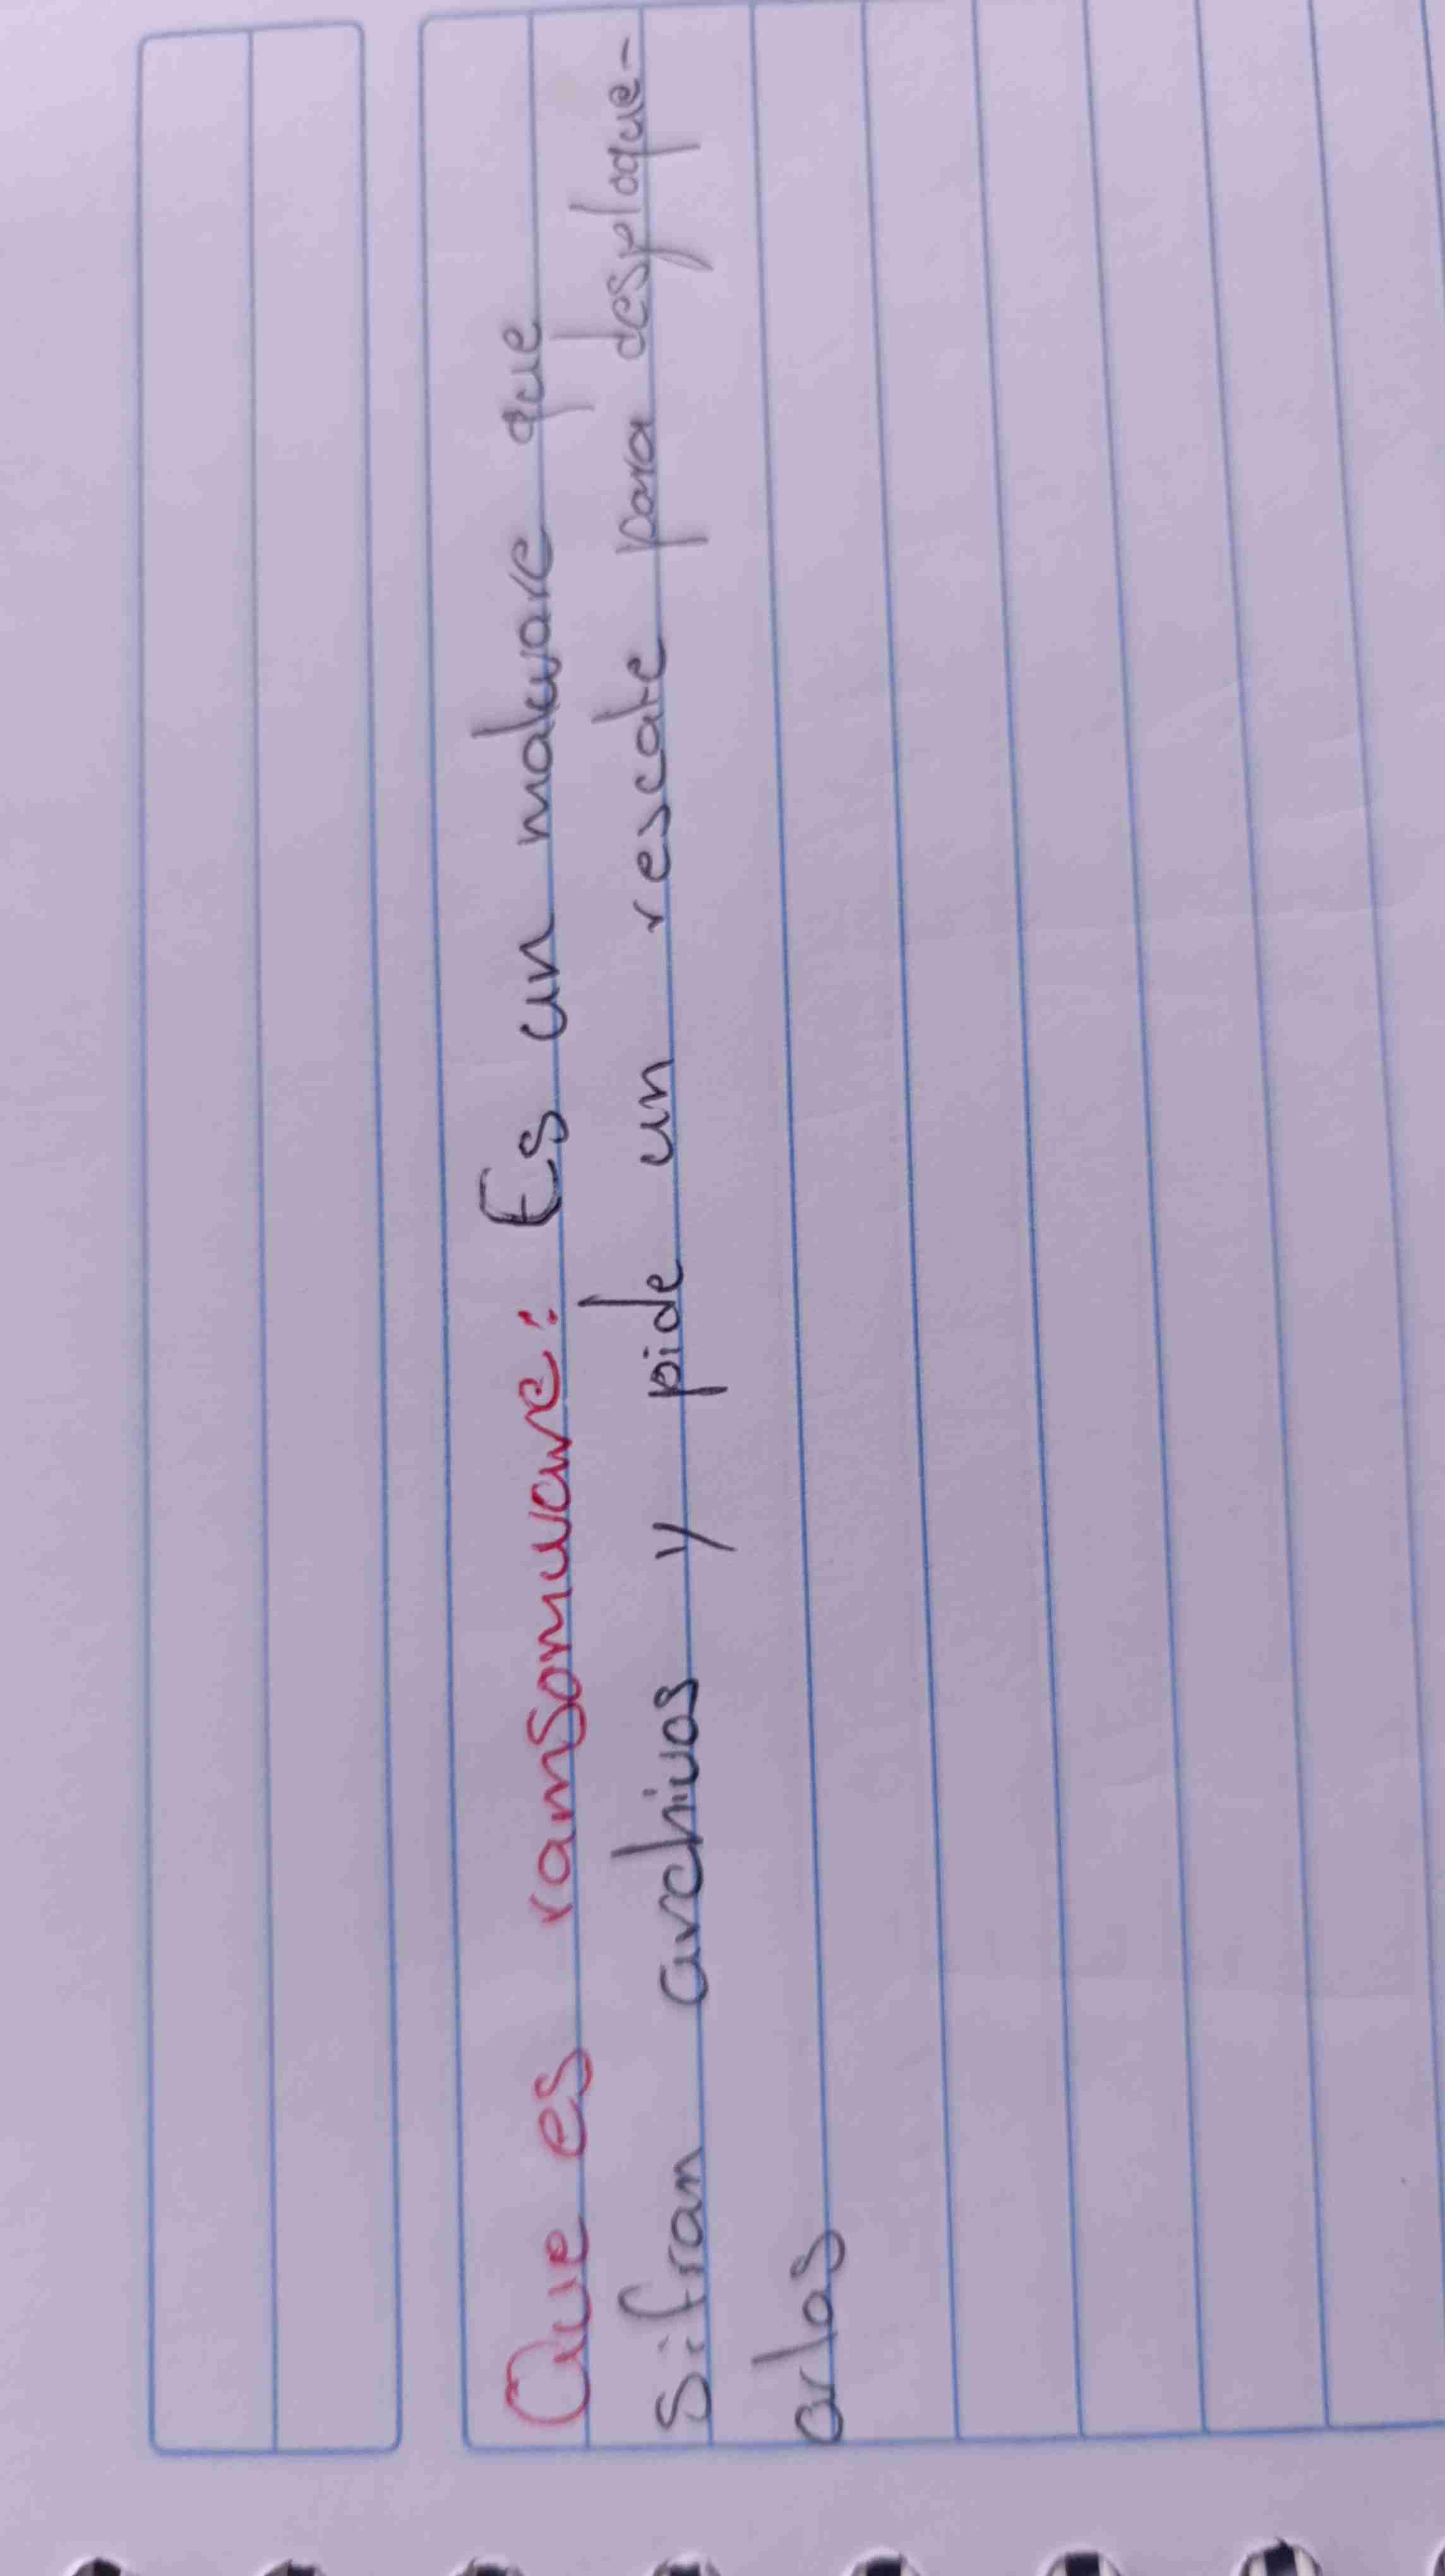 Que es ransomware: Es un malware que
Sifran archivos y pide un rescate para desploque-
arlas